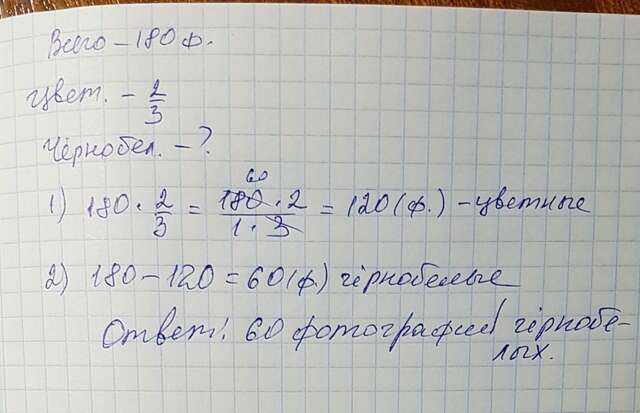 Всего – 180 ф.
Цвет. – 2/3
Чёрнобел. – ?
1) 180 · 2/3 = 180 · 2 / 1 · 3 = 120 (ф.) – цветные
60
2) 180 – 120 = 60 (ф.) чёрнобелые
Ответ: 60 фотографий чёрнобе-
лых.